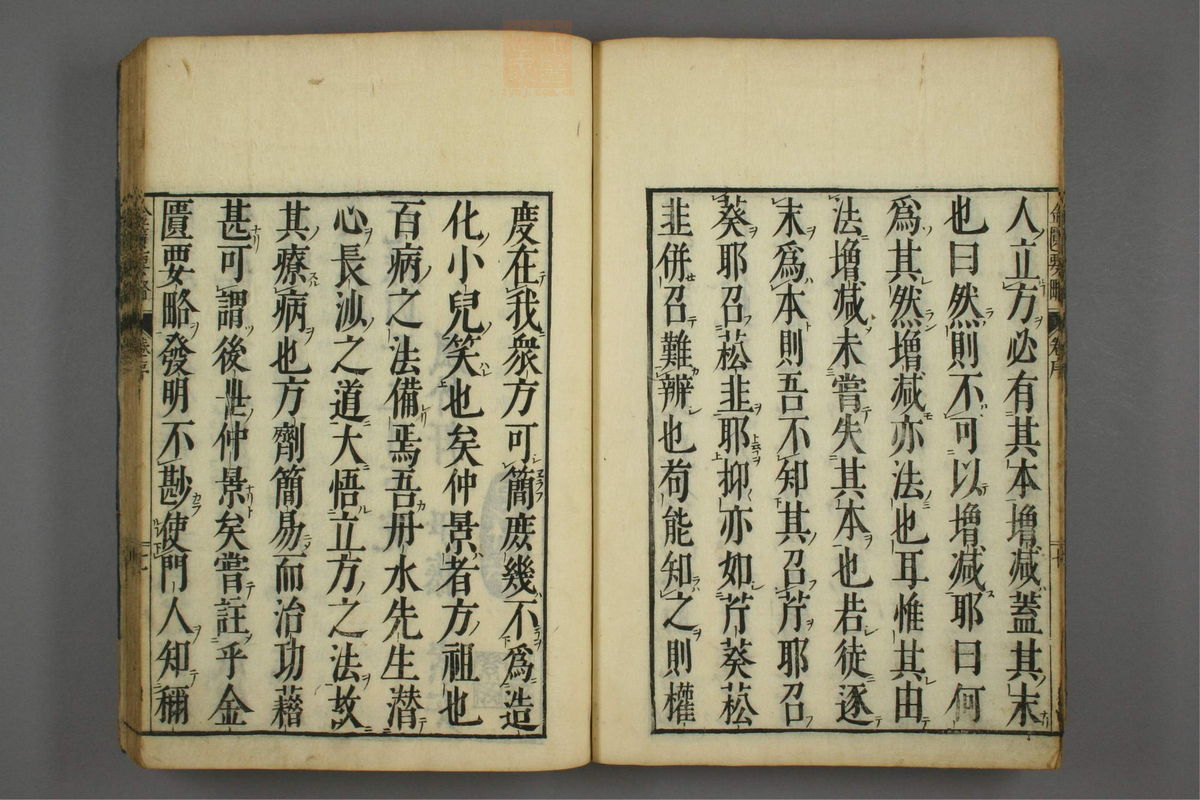 人立方必有其本増减蓋其末
也曰然則不可以増减耶曰何
爲其然増减亦法也耳惟其由
法増减未嘗失其本也若徒逐
末爲本則吾不知其召芹耶召
葵耶召菘韭耶抑亦如芹葵菘
韭併召難辨也苟能知之則權
度在我衆方可簡庶幾不爲造
化小兒笑也矣仲景者方祖也
百病之法備焉吾丹水先生潜
心長沙之道大悟立方之法故
其療病也方劑簡易而治功藉
甚可謂後世仲景矣嘗註乎金
匱要略發明不尠使門人知稱